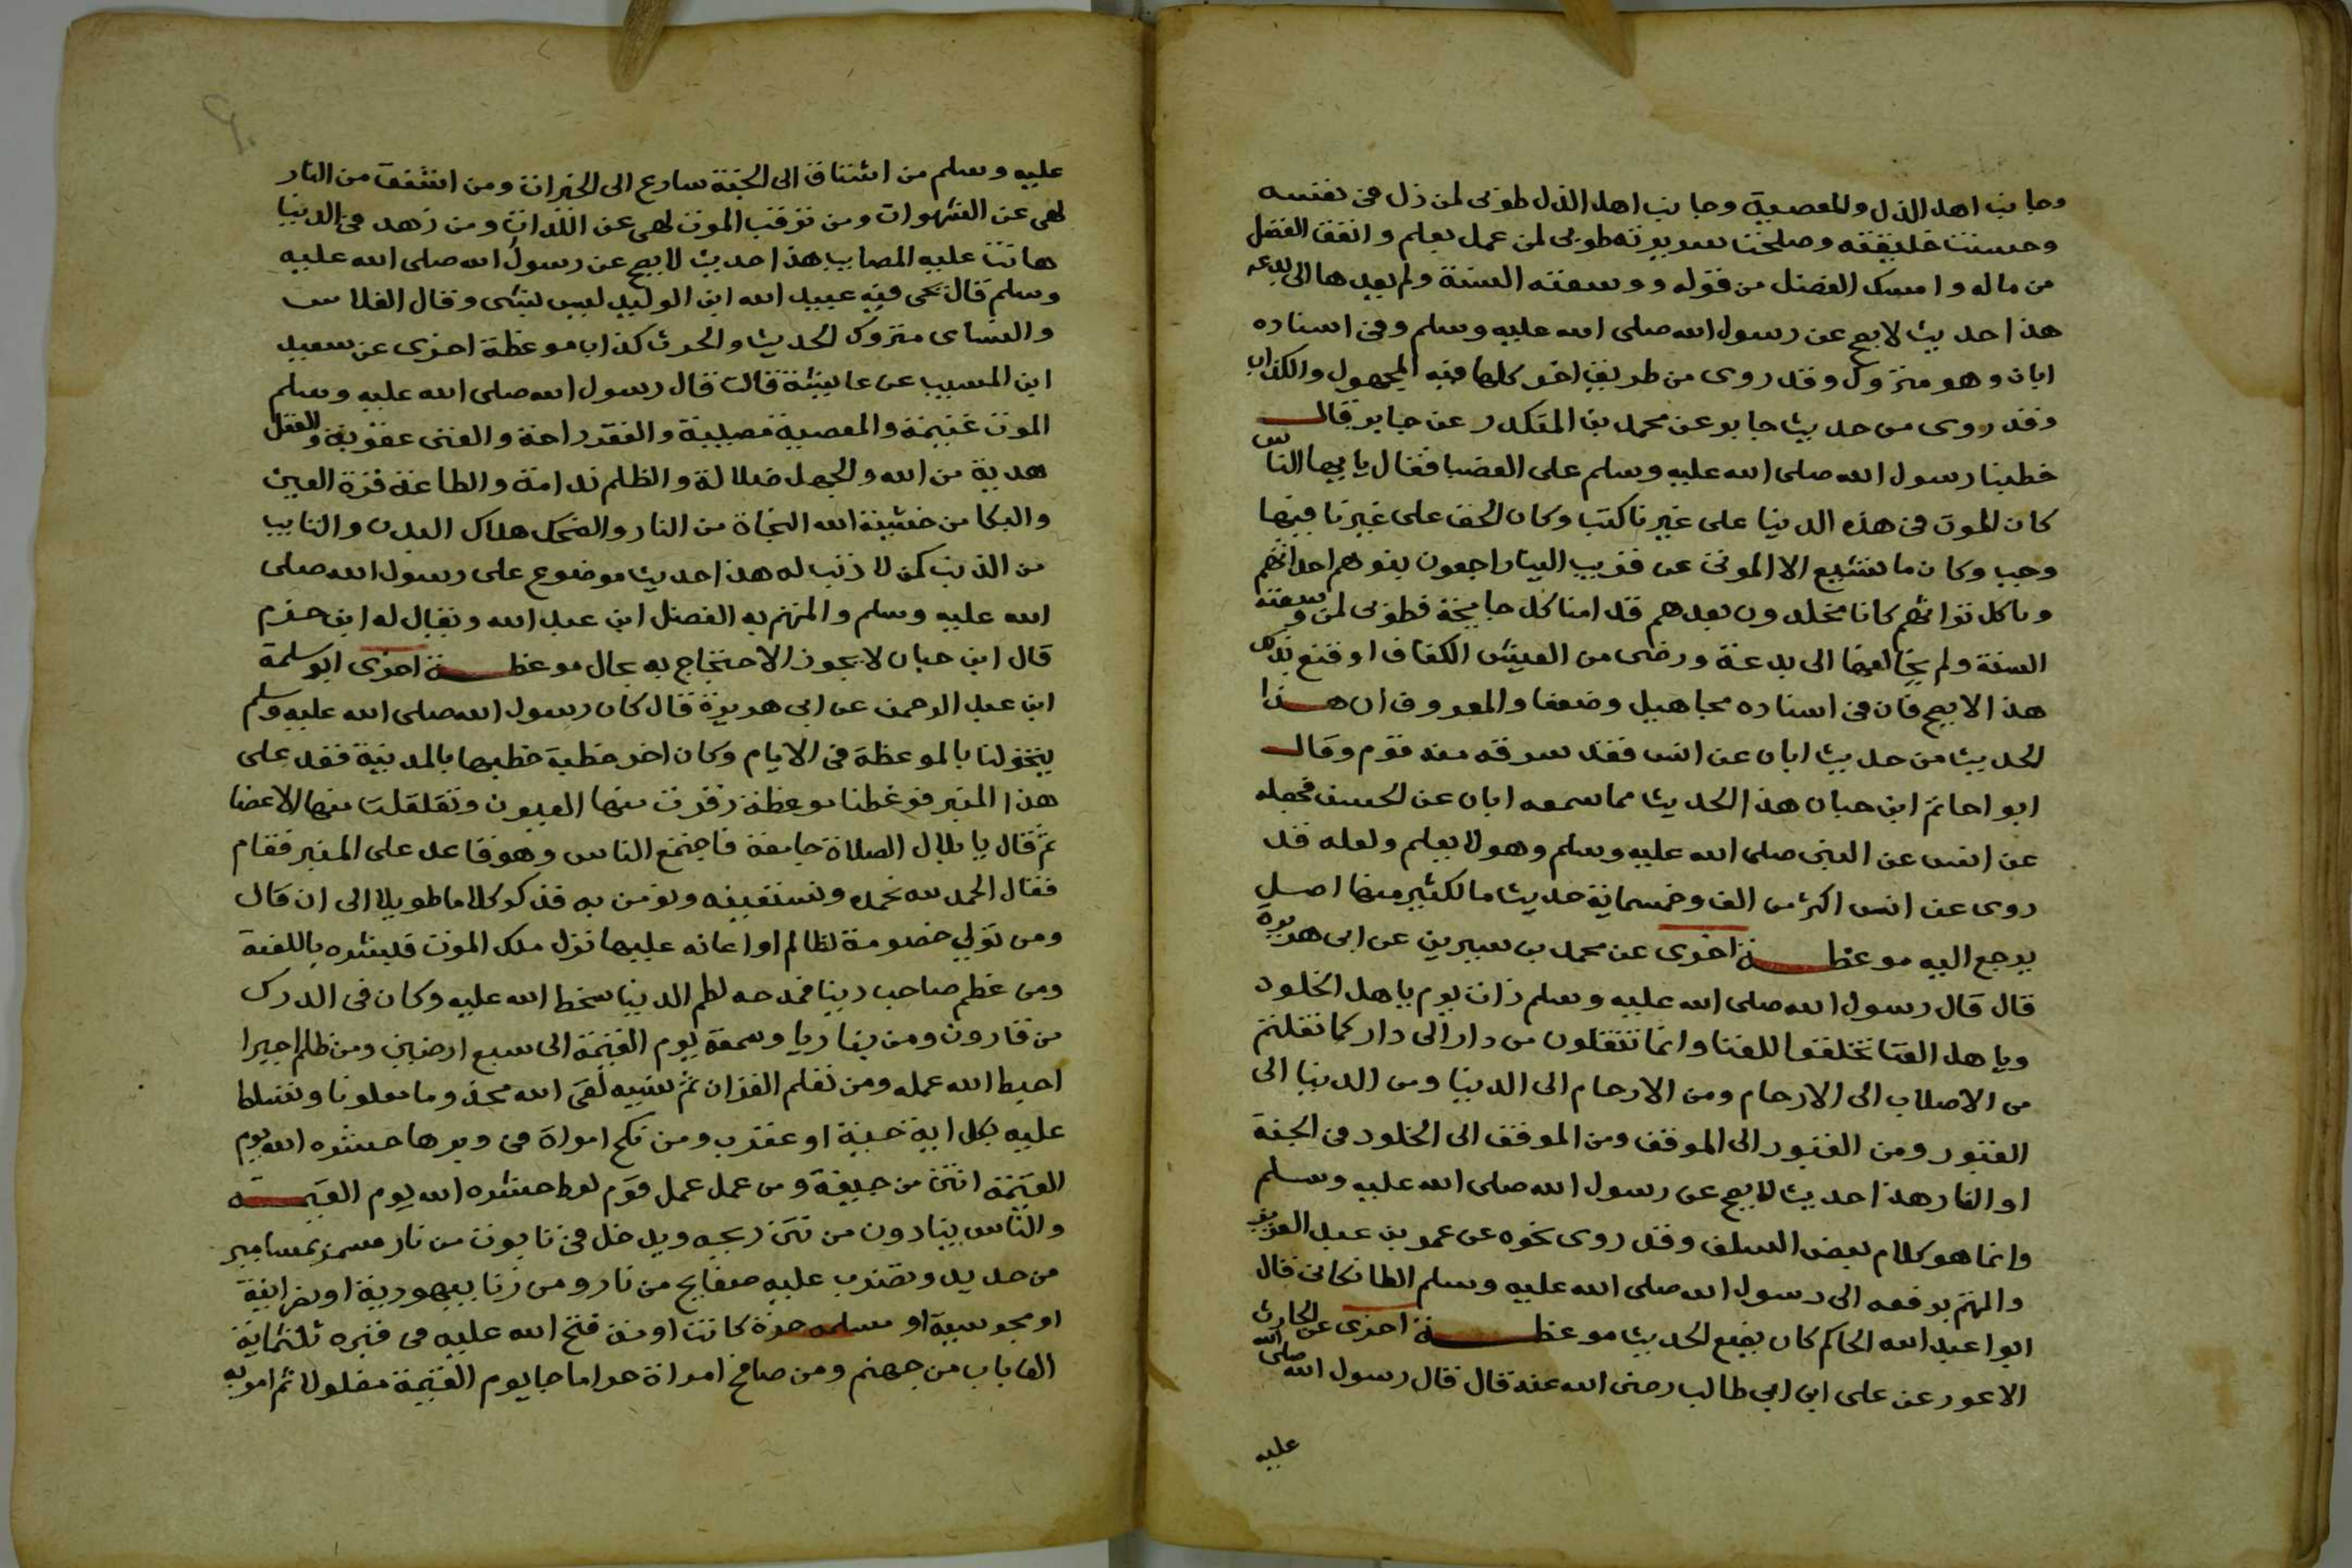 وجانب اهل الذل والمعصية وجانب اهل الذل طوبى لمن ذل في نفسه
وحسنت خليقته وصلحت سريرته طوبى لمن عمل بعلم وانفق الفضل
من ماله وامسك الفضل من قوله ووسعته السنة ولم يعدها الى بدعه
هذا حديث لا يصح عن رسول الله صلى الله عليه وسلم وفي اسناده
ابان وهو متروك وقد روى من طريق اخر كلها فيه المجهول والكذاب
وقد روى من حديث جابر عن محمد بن المنكدر عن جابر قال
خطبنا رسول الله صلى الله عليه وسلم على العضبا فقال يا ايها الناس
كان الموت في هذه الدنيا على غيرنا كتب وكان الحق على غيرنا فيها
وجب وكان ما نشيع الا الموتى عن قريب الينا راجعون بنوهم اجداثهم
وناكل تراثهم كانا مخلدون بعدهم قد امنا كل جايحة فطوبى لمن وسعته
السنة ولم يخالفها الى بدعة ورضى من العيش الكفاف او قنع بذلك
هذا لا يصح فان في اسناده مجاهيل وضعفا والمعروف ان هذا
الحديث من حديث ابان عن انس فقد سرقه منه قوم وقال
ابو احاتم ابن حبان هذا الحديث مما سمعه ابان عن الحسن فجعله
عن انس عن النبى صلى الله عليه وسلم وهو لا يعلم ولعله قد
روى عن انس اكثر من الف وخمسماية حديث ما لكثير منها اصل
يرجع اليه موعظة اخرى عن محمد بن سيرين عن ابى هريرة
قال قال رسول الله صلى الله عليه وسلم ذات يوم ياهل الخلود
وياهل الفنا تخلقوا للفنا وانما تنتقلون من دار الى دار كما نقلتم
من الاصلاب الى الارحام ومن الارحام الى الدنيا ومن الدنيا الى
القبور ومن القبور الى الموقف ومن الموقف الى الخلود في الجنة
او النار هذا حديث لا يصح عن رسول الله صلى الله عليه وسلم
وانما هو كلام بعض السلف وقد روى نحوه عن عمر بن عبد العزيز
والمتهم برفعه الى رسول الله صلى الله عليه وسلم الطانكانى قال
ابوا عبد الله الحاكم كان يضع الحديث موعظة اخرى عن الحارث
الاعور عن على ابن ابي طالب رضى الله عنه قال قال رسول الله صلى الله
عليه
عليه وسلم من اشتاق الى الجنة سارع الى الخيرات ومن اشفق من النار
لهى عن الشهوات ومن ترقب الموت لهى عن اللذات ومن زهد في الدنيا
هانت عليه المصايب هذا حديث لا يصح عن رسول الله صلى الله عليه
وسلم قال يحى فيه عبيد الله ابن الوليد ليس بشى وقال الفلاس
والنساى متروك الحديث والحرث كذاب موعظة اخرى عن سعيد
ابن المسيب عن عايشة قالت قال رسول الله صلى الله عليه وسلم
الموت غنيمة والمعصية مصيبة والفقر راحة والغنى عقوبة والعقل
هدية من الله والجهل ضلالة والظلم ندامة والطاعة قرة العين
والبكا من خشية الله النجاة من النار والضحك هلاك البدن والتايب
من الذنب كمن لا ذنب له هذا حديث موضوع على رسول الله صلى
الله عليه وسلم والمتهم به الفضل ابن عبد الله ويقال له ابن حزم
قال ابن حبان لا يجوز الاحتجاج به بحال موعظة اخرى ابو سلمة
ابن عبد الرحمن عن ابى هريرة قال كان رسول الله صلى الله عليه وسلم
يتخولنا بالموعظة في الايام وكان اخر خطبة خطبها بالمدينة فقد على
هذا المنبر فوعظنا موعظة ذرفت منها العيون وتقلقلت منها الاعضا
ثم قال يا بلال الصلاة جامعة فاجتمع الناس وهو قاعد على المنبر فقام
فقال الحمد لله نحمده ونستعينه ونومن به فذكر كلاما طويلا الى ان قال
ومن تولى خصومة لظالم او اعانه عليها نزل ملك الموت فبشره باللعنة
ومن عظم صاحب دينا فمدحه لطم الدينا سخط الله عليه وكان في الدرك
من قارون ومن بنا ريا وسمعة يوم القيمة الى سبع ارضين ومن ظلم اجيرا
احبط الله عمله ومن تعلم القران ثم نسيه لقى الله مجذوما ملعونا وتسلط
عليه بكل اية حية او عقرب ومن نكح امراة في دبرها حشره الله يوم
القيمة انتن من جيفة ومن عمل عمل قوم لوط حشره الله يوم القيمه
والناس يتنادون من نتن ريحه ويدخل في تابوت من نار مسمر بمسامير
من حديد وتضرب عليه صفايح من نار ومن زنا بيهودية او نصرانية
او مجوسية او مسلمه حرة كانت او منه فتح الله عليه في قبره ثلثماية
الف باب من جهنم ومن صافح امراة حراما جا يوم القيمة مغلولا ثم امر به